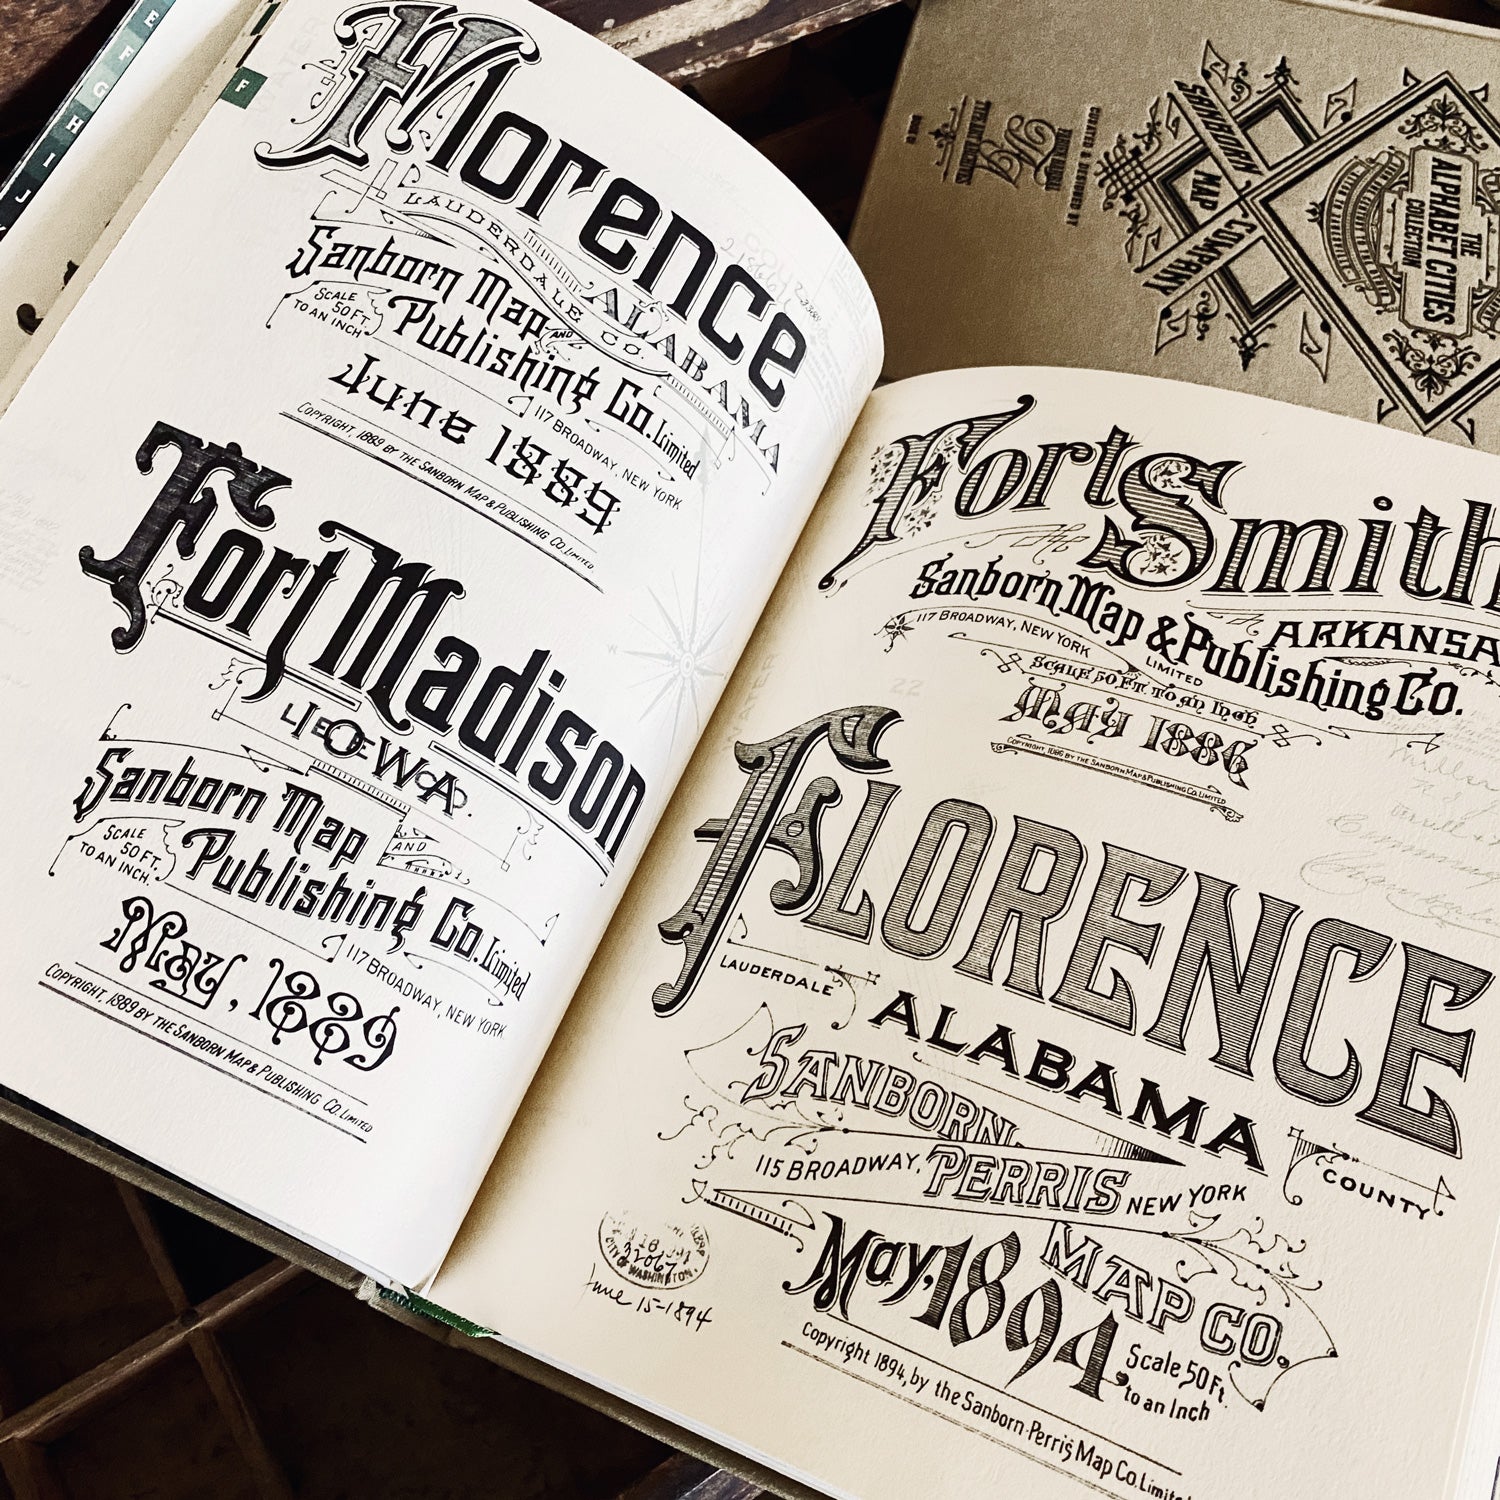 E
F
G
H
I
J
F
Florence
LAUDERDALE CO.
ALABAMA
Sanborn Map AND
Publishing Co. Limited
SCALE
50 FT.
TO AN INCH
117 BROADWAY, NEW YORK
June 1889
COPYRIGHT, 1889 BY THE SANBORN MAP & PUBLISHING CO. LIMITED.
Fort Madison
IOWA.
Sanborn Map
AND
Publishing Co. Limited
SCALE
50 FT.
TO AN INCH.
117 BROADWAY, NEW YORK.
May, 1889
COPYRIGHT, 1889 BY THE SANBORN MAP & PUBLISHING CO. LIMITED
THE
ALPHABET CITIES
COLLECTION
SANBORN
MAP
COMPANY
Fort Smith
ARKANSA
The
Sanborn Map & Publishing Co.
117 BROADWAY, NEW YORK
LIMITED
SCALE 50 FT. TO AN INCH.
MAY 1886
COPYRIGHT, 1886 BY THE SANBORN MAP & PUBLISHING CO. LIMITED
FLORENCE
LAUDERDALE
ALABAMA
COUNTY
SANBORN
PERRIS
115 BROADWAY,
NEW YORK
MAP CO.
May, 1894
Scale 50 Ft.
to an Inch
CITY OF WASHINGTON.
June 15-1894
Copyright 1894, by the Sanborn-Perris Map Co. Limite